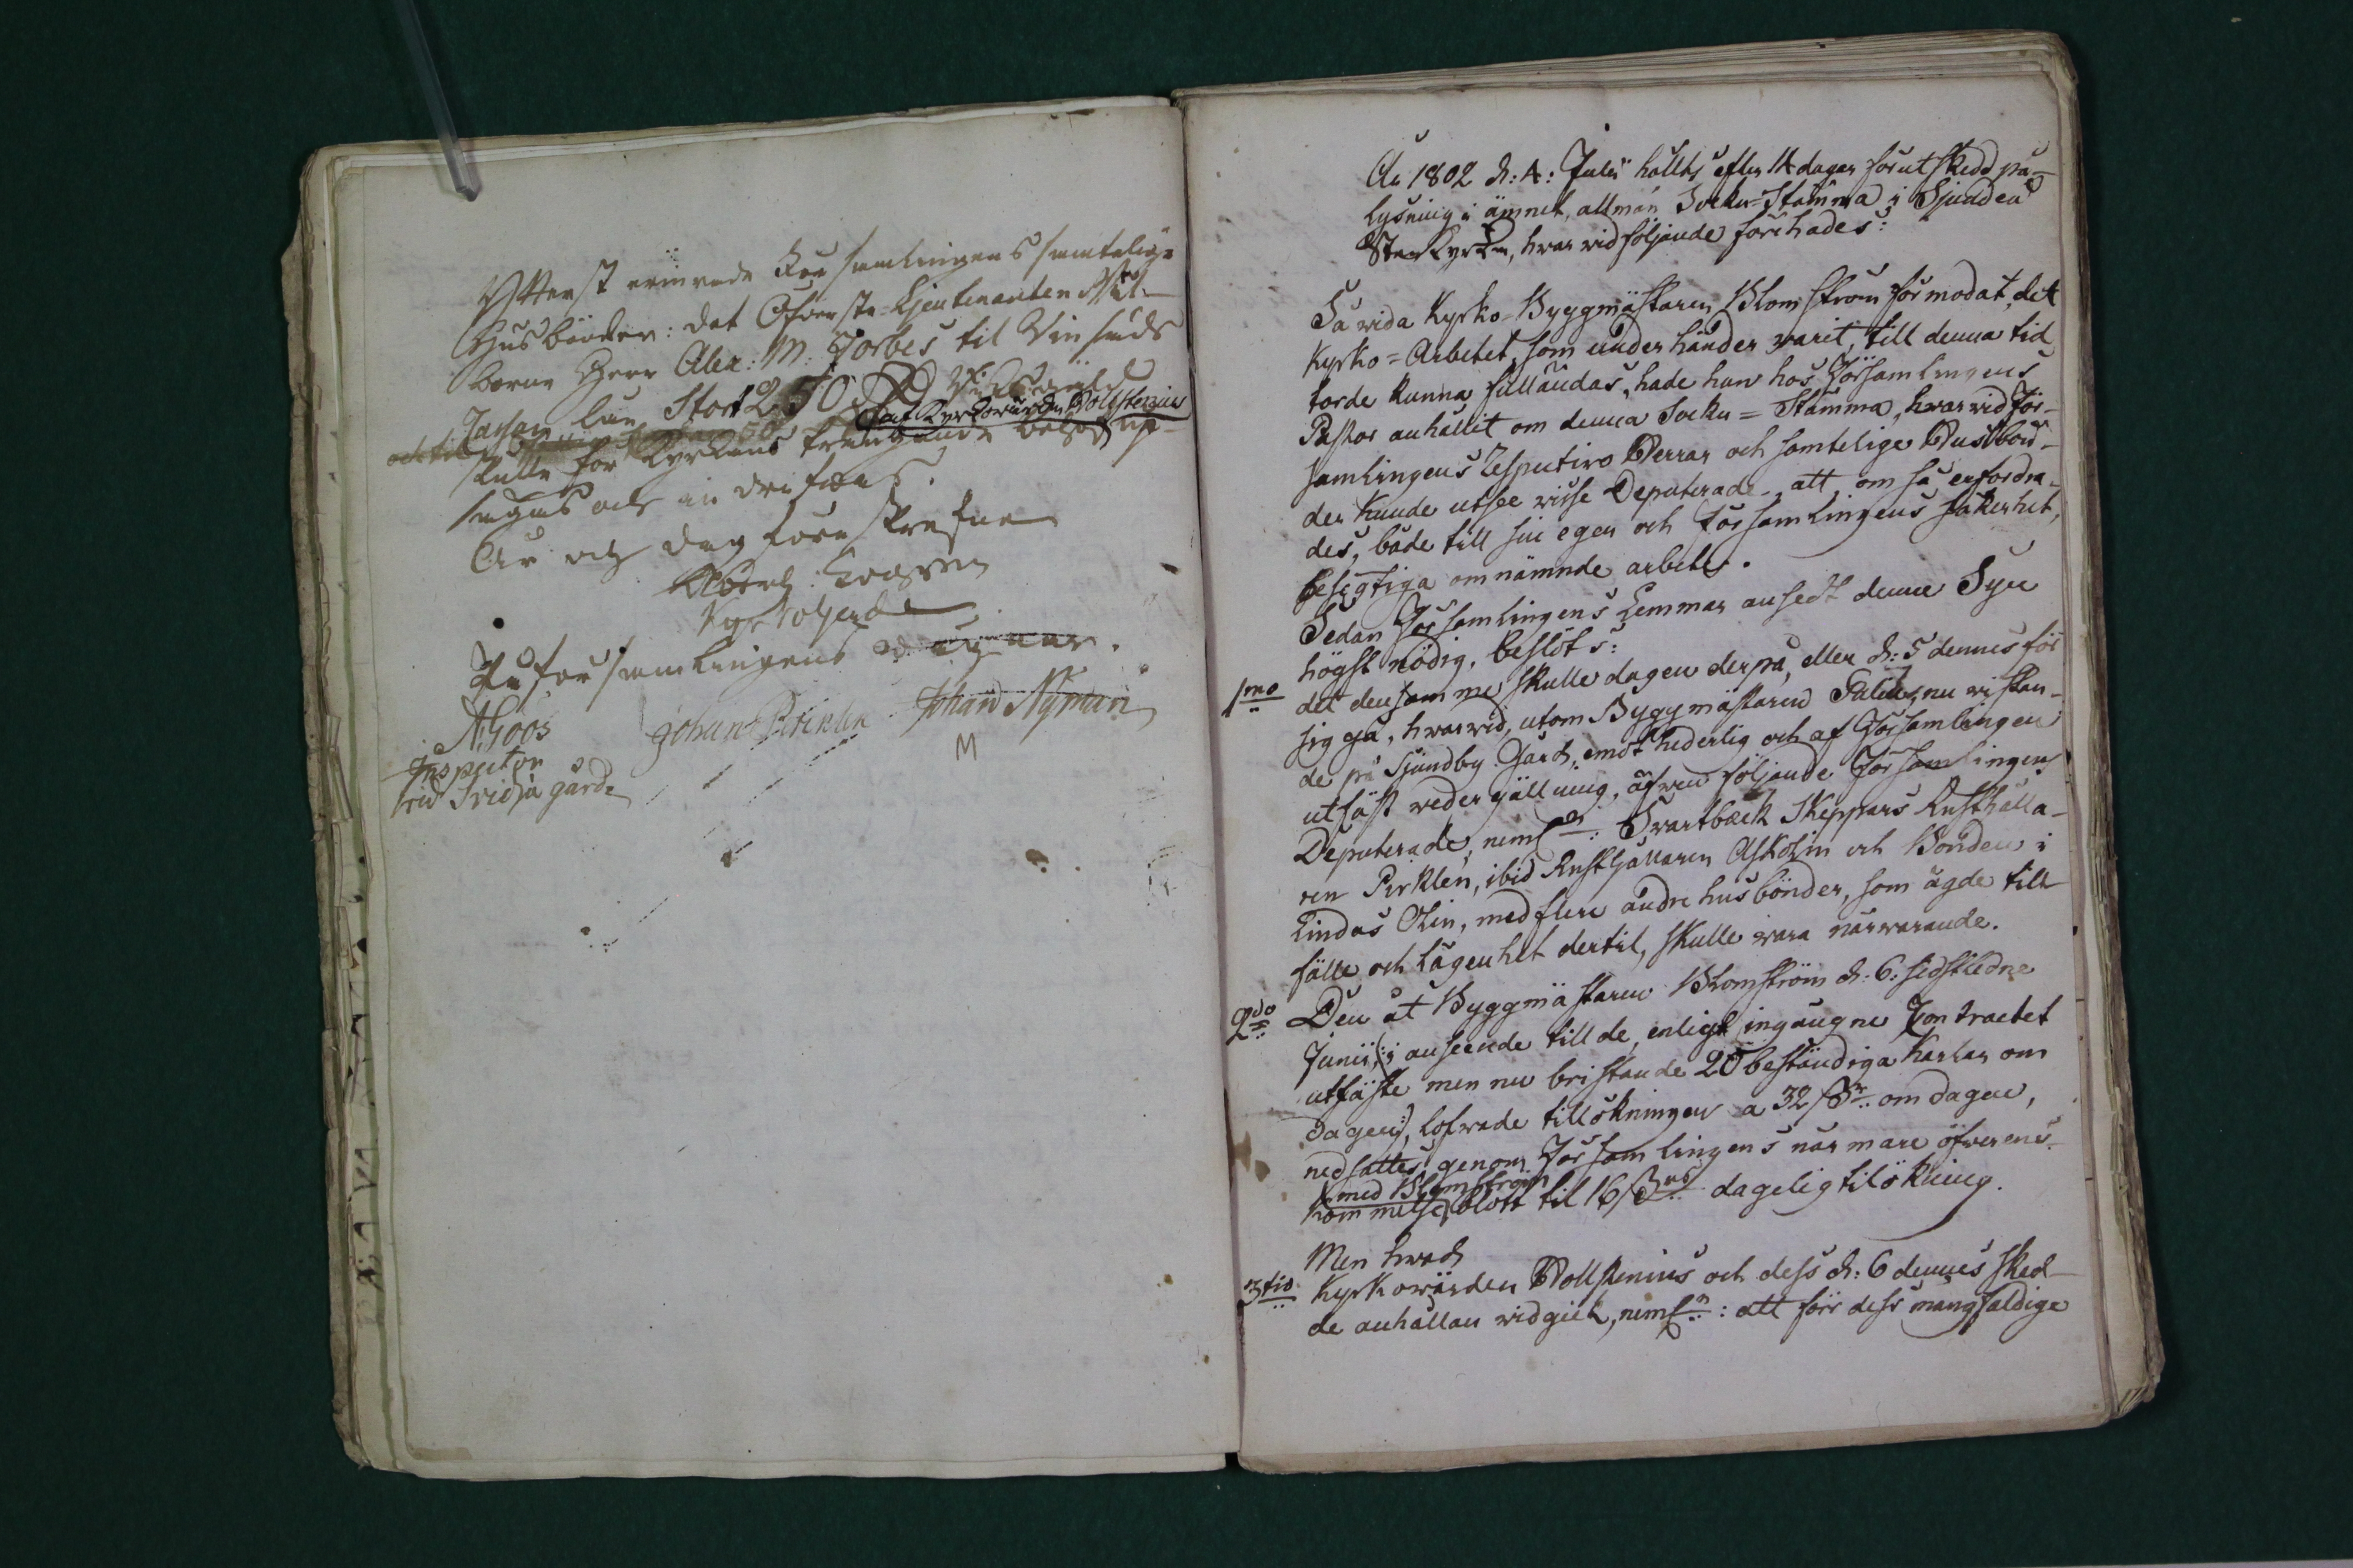 Ytterst erinrade Församlingens samtelige
Husbönder: det Öfverste-Lieutenanten Wäl-
borne Herr Alex: M: Forbes til Vinsunds
Stort 250 Rd
af Kyrkovärden Wollstenius
och til
skulle för Kyrkans trängande behof up-
sägas och indrifwas.
År och dag förr skrefne
På församlingens wägnar.
A. Goos
Johan Pirklen
Johan Nyman
Inspector
vid Svidja gård
M
År 1802 d: 4: Julii hölts efter 14 dagar förut skedd på-
lysning i ämnet, allmän Sockn-Stämma i Sjundeå
Stenkyrka, hwarwid följande förehades:
Så wida Kyrko-Byggmästaren Blomström förmodat, det
Kyrko=Arbetet, som under händer warit, till denna tid
torde kunna fulländas, hade han hos Församlingens
Pastor anhållit om denna Sockn=Stämma, hwarwid För-
samlingens Respective Herrar och samtelige Husbön-
der kunde utse wisse Deputerade, att, om så erfordra-
des, både till sin egen och Församlingens säkerhet,
besigtiga omnämnde arbete.
Sedan Församlingens Lemmar ansedt denne Syn
högst nödig, beslöts:
1mo det densamme skulle dagen derpå, eller d: 5 dennes för
sig gå, hwarwid, utom Byggmästaren nu wistan-
de på Sjundby Gård, emot hederlig och af Församlingen
utfäst wedergällning, äfwen följande Församlingens
Deputerade, neml:n: Svartbäck Skeppars Rusthålla-
ren Pirklen, ibid Rusthållaren Askolin och Bonden i
Lindas Olin, med flere andre husbönder, som ägde till-
fälle och lägenhet dertil, skulle wara närwarande.
2do Den åt Byggmästaren Blomström d: 6: sidstledne
Junii (: i anseende till de, enligt ingångne Contractet
utfäste men nu bristande 20 beständiga Karlar om
dagen:), lofwade tillökningen a 32 ß:r om dagen,
nedsattes genom Församlingens närmare öfwerens-
med Blomström
kommelse blott til 16 ß:rs dagelig tilökning.
Men hwad
3tio Kyrkowärden Wollstenius och dess d: 6 dennes sked-
de anhållan widgick, neml:n: att för dess mångfaldige